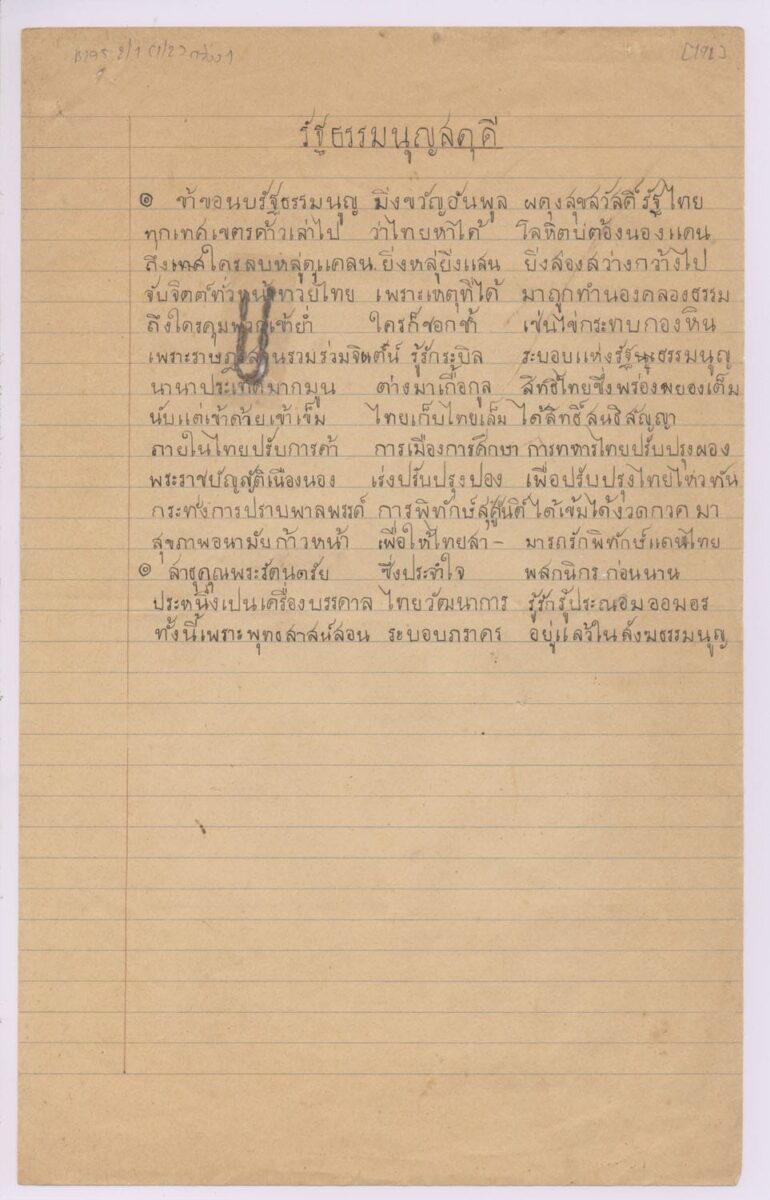 [192]
รัฐธรรมนุญสดุดี
๏ ข้าขอนบรัฐธรรมนูญ มิ่งขวัญอันพูล ผดุงสุขสวัสดิ์รัฐไทย
ทุกเทศเขตรด้าวเล่าไป ว่าไทยหาได้ โลหิตบ่ต้องนองแดน
ถึงเทศใครลบหลู่ดูแคลน ยิ่งหลู่ยิ่งแสน ยิ่งส่องสว่างกว้างไป
จับจิตต์ทั่วหน้าทวยไทย เพราะเหตุที่ได้ มาถูกทำนองคลองธรรม
ถึงใครคุมพวกเข้าย่ำ ใครก็ชอกช้ำ เช่นไข่กระทบกองหิน
เพราะราษฎร รวมร่วมจิตต์น์ รู้รักระบิล ระบอบแห่งรัฐธรรมนูญ
นานาประเทศมากมูน ต่างมาเกื้อกุล สิทธิไทยซึ่งพร่องพยองเต็ม
นับแต่เข้าด้ายเข้าเข็ม ไทยเก็บไทยเล็ม ได้สิทธิ์สนธิสัญญา
ภายในไทยปรับการค้า การเมืองการศึกษา การทหารไทยปรับปรุงผอง
พระราชบัญญัติเนืองนอง เร่งปรับปรุงปอง เพื่อปรับปรุงไทยไหวทัน
กระทั่งการปราบพาลพรรค์ การพิทักษ์สุ ได้เข้มได้งวดกวดมา
สุขภาพอนามัยก้าวหน้า เพื่อให้ไทยสา- มารถรักพิทักษ์แดนไทย
๏ สาธุคุณพระรัตนตรัย ซึ่งประจำใจ พสกนิกรก่อนนาน
ประหนึ่งเปนเครื่องบรรดาล ไทยวัฒนาการ รู้รักรู้ประณอมออมอร
ทั้งนี้เพราะพุทธสาสน์สอน ระบอบภราดร อยู่แล้วในสังฆธรรมนูญ